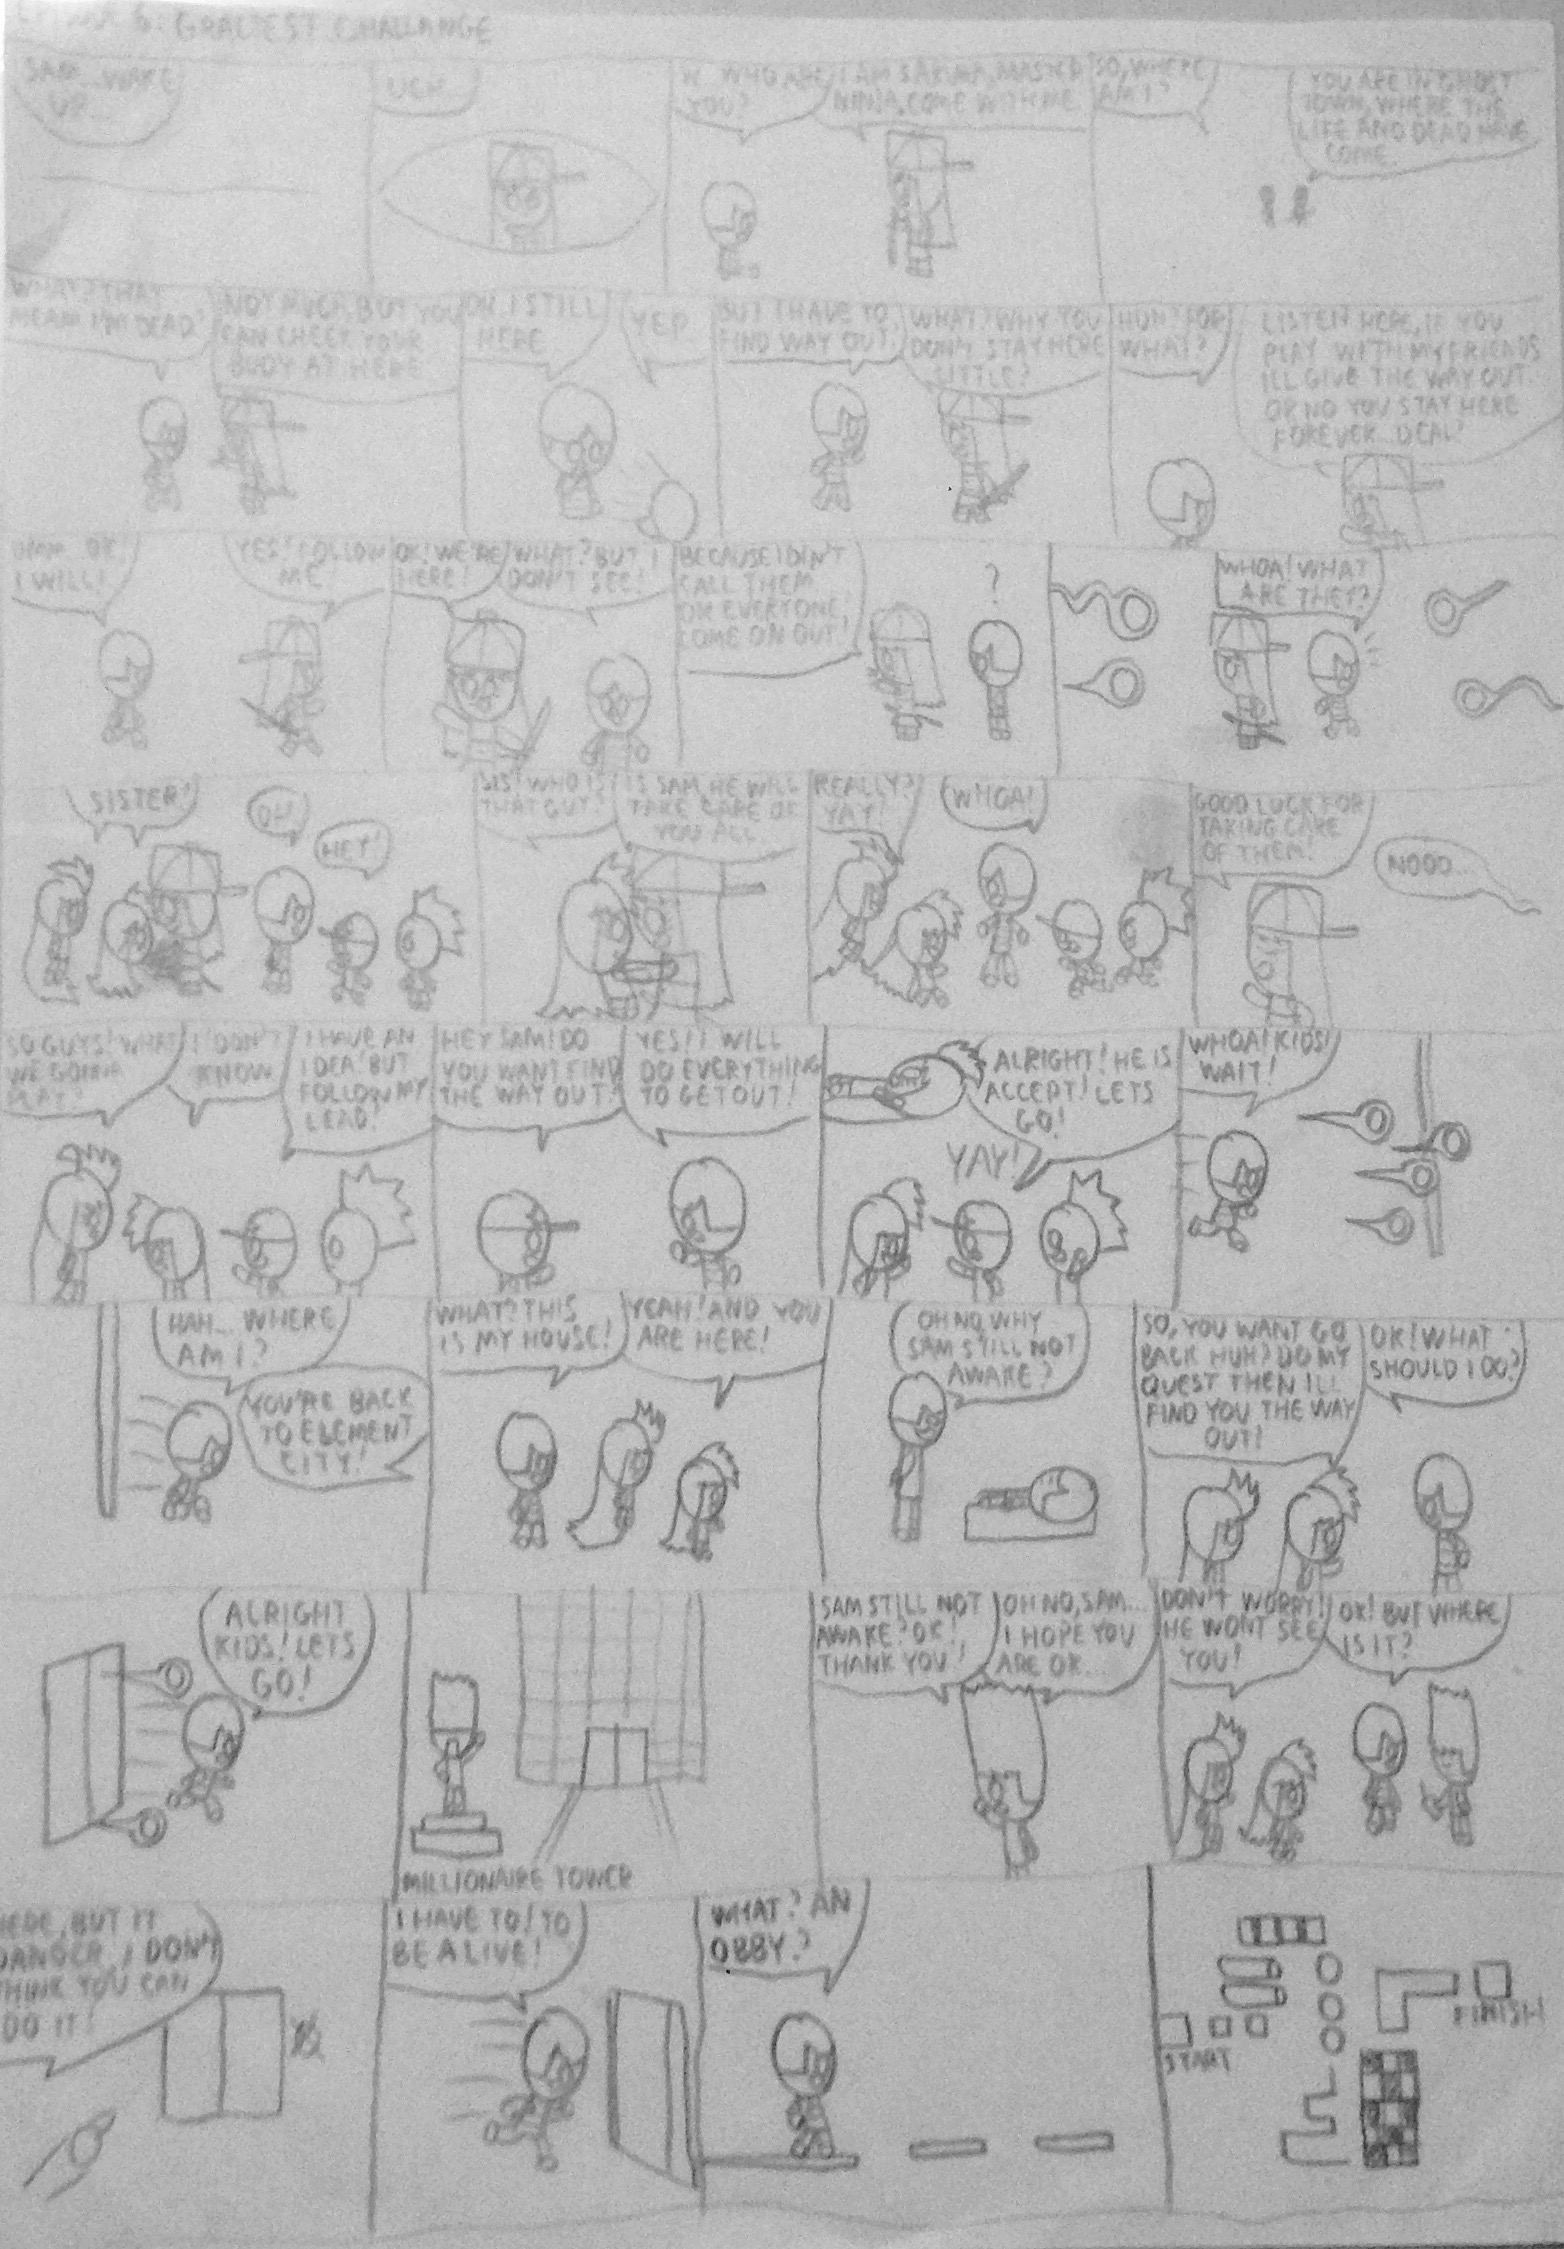 6: GRALTEST CHALLANGE
SAM... WAKE
UP...
UGH
W.. WHO ARE
YOU?
I AM SAKURA, MASTER
NINJA, COME WITH ME
SO, WHERE
AM I?
YOU ARE IN GHOST
TOWN, WHERE THE
LIFE AND DEAD HAVE
COME
WHAT? THAT
MEAM I'M DEAD
NOT MUCH, BUT YOU
CAN CHEET YOUR
BODY AT HERE
OH I STILL
HERE
YEP
BUT I HAVE TO
FIND WAY OUT
WHAT? WHY YOU
DON'T STAY HERE
LITTLE?
HUH? FOR
WHAT?
LISTEN HERE, IF YOU
PLAY WITH MY FRIENDS
ILL GIVE THE WAY OUT.
OR NO YOU STAY HERE
FOREVER... DEAL?
UMM.. OK!
I WILL!
YES! FOLLOW
ME!
OK! WE'RE
HERE!
WHAT? BUT I
DON'T SEE!
BECAUSE I DIN'T
CALL THEM
OK EVERYONE,
COME ON OUT!
?
WHOA! WHAT
ARE THEY?
SISTER!
OH!
HEY!
SIS! WHO IS
THAT GUY?
IS SAM, HE WILL
TAKE CARE OF
YOU ALL
REALLY?
YAY!
WHOA!
GOOD LUCK FOR
TAKING CARE
OF THEM!
NOOO...
SO GUYS! WHAT
WE GONNA
PLAY?
I DON'T
KNOW
I HAVE AN
IDEA! BUT
FOLLOW MY
LEAD!
HEY SAM! DO
YOU WANT FIND
THE WAY OUT?
YES! I WILL
DO EVERYTHING
TO GET OUT!
ALRIGHT! HE IS
ACCEPT! LETS
GO!
YAY!
WHOA! KIDS!
WAIT!
HAH... WHERE
AM I?
YOU'RE BACK
TO ELEMENT
CITY!
WHAT? THIS
IS MY HOUSE!
YEAH! AND YOU
ARE HERE!
OH NO, WHY
SAM STILL NOT
AWAKE?
SO, YOU WANT GO
BACK HUH? DO MY
QUEST THEN ILL
FIND YOU THE WAY
OUT!
OK! WHAT
SHOULD I DO?
ALRIGHT
KIDS! LETS
GO!
MILLIONAIRE TOWER
SAM STILL NOT
AWAKE? OK!
THANK YOU!
OH NO, SAM...
I HOPE YOU
ARE OK...
DON'T WORRY!
HE WONT SEE
YOU!
OK! BUT WHERE
IS IT?
HERE, BUT IT
DANGER, I DON'T
THINK YOU CAN
DO IT!
I HAVE TO! TO
BE ALIVE!
WHAT? AN
OBBY?
START
FINISH